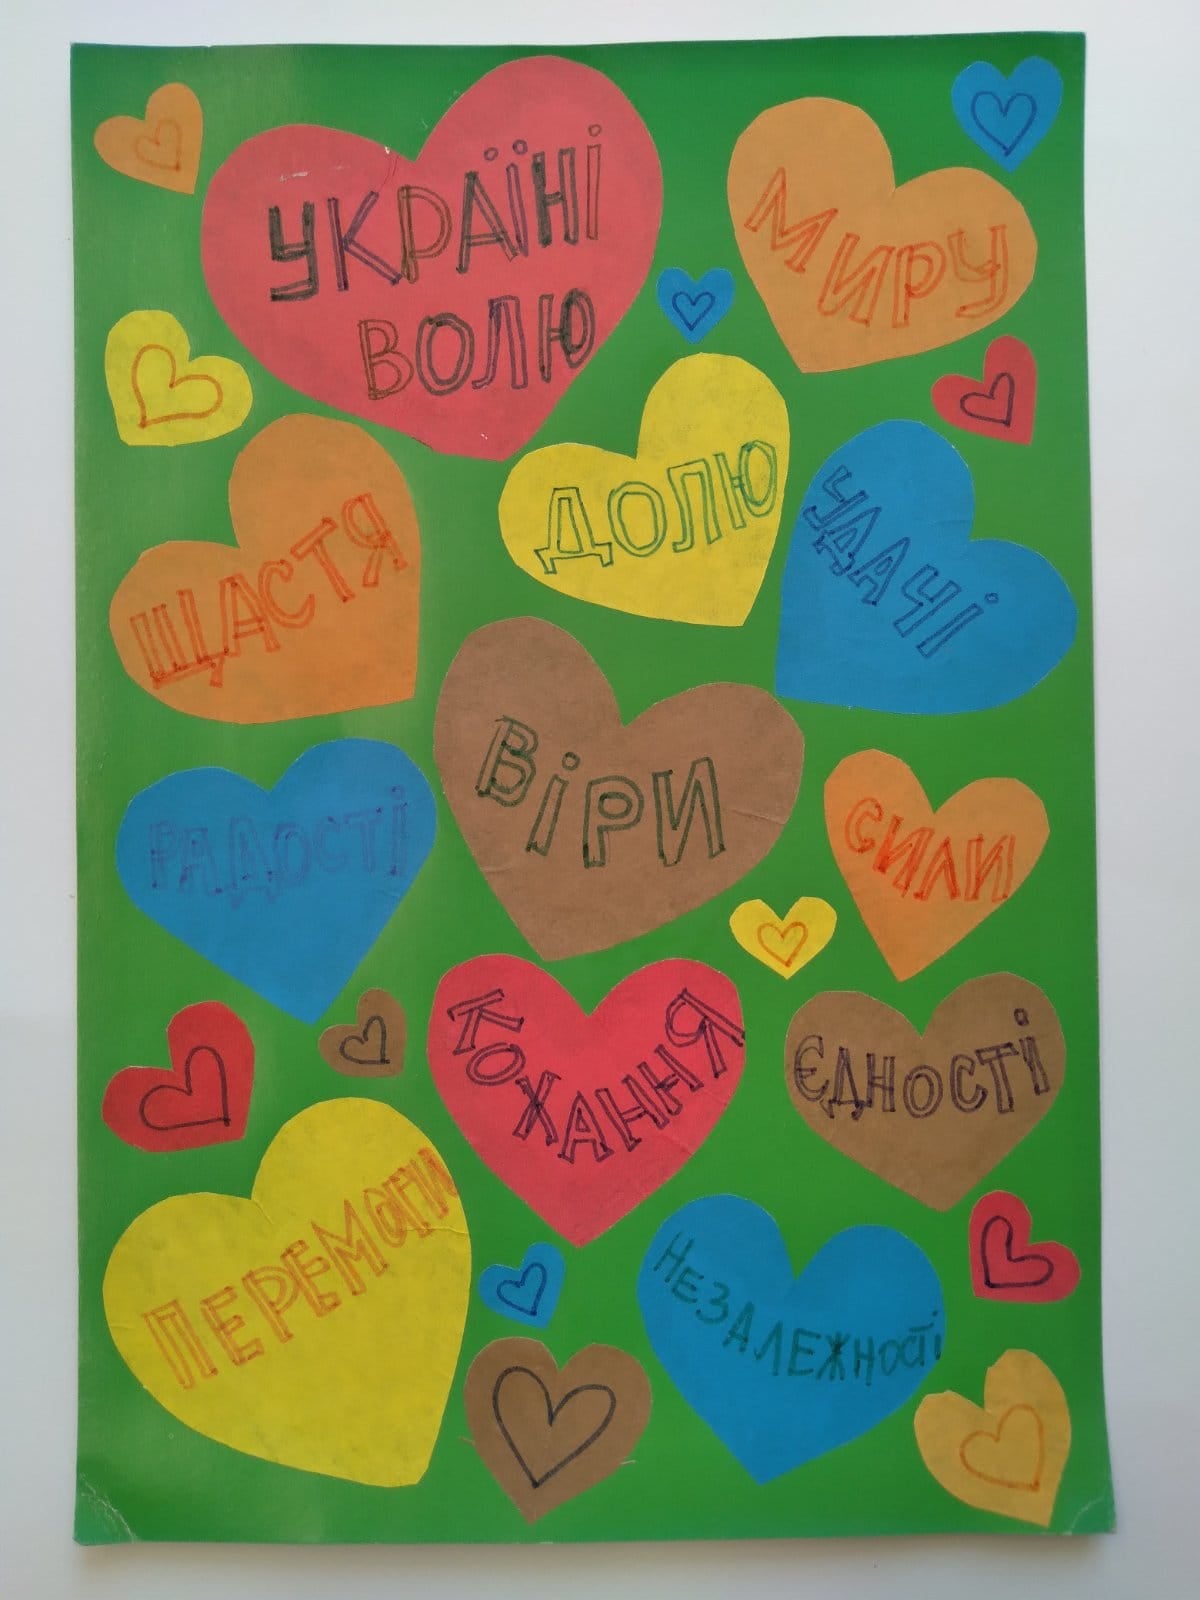 УКРАЇНІ
ВОЛЮ
МИРУ
ДОЛЮ
УДАЧІ
ЩАСТЯ
ВІРИ
РАДОСТІ
СИЛИ
КОХАННЯ
ЄДНОСТІ
ПЕРЕМОГИ
НЕЗАЛЕЖНОСТІ